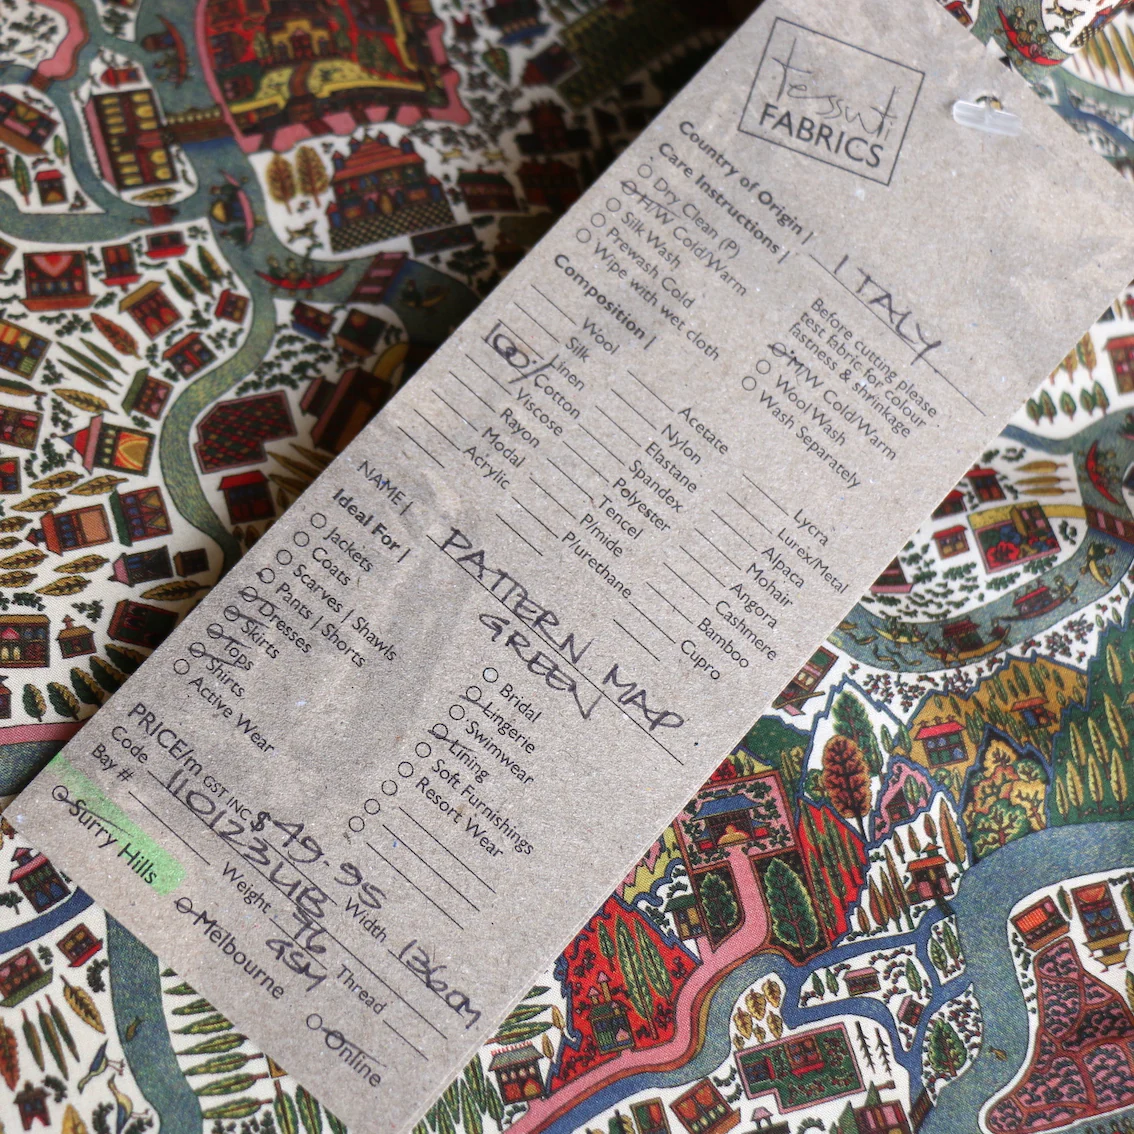 tessuti
FABRICS
Country of Origin | ITALY
Care Instructions |
Dry Clean (P)
H/W Cold/Warm
Silk Wash
Prewash Cold
Wipe with wet cloth
Before cutting please
test fabric for colour
fastness & shrinkage
M/W Cold/Warm
Wool Wash
Wash Separately
Composition |
Wool
Silk
Linen
100% Cotton
Viscose
Rayon
Modal
Acrylic
Acetate
Nylon
Elastane
Spandex
Polyester
Tencel
P/mide
P/urethane
Lycra
Lurex/Metal
Alpaca
Mohair
Angora
Cashmere
Bamboo
Cupro
NAME | PATTERN MAP
GREEN
Ideal For |
Jackets
Coats
Scarves | Shawls
Pants | Shorts
Dresses
Skirts
Tops
Shirts
Active Wear
Bridal
Lingerie
Swimwear
Lining
Soft Furnishings
Resort Wear
PRICE/m GST INC $49.95
Code 110123UB Width 136cm
Bay # Weight 76 GSM Thread
Surry Hills
Melbourne
Online